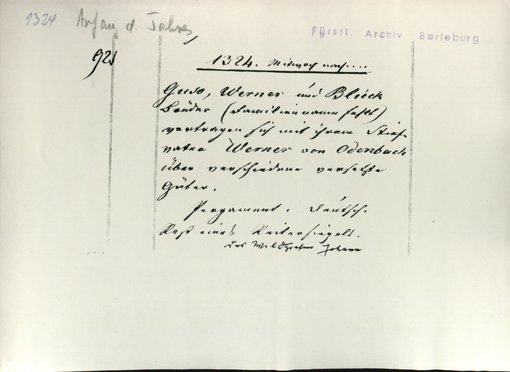 1324 Anfang d. Jahres,
Fürstl. Archiv Berleburg
921
1324. Mittwoch nach....
Guso, Werner und Bleick
Brüder (Familienname fehlt)
vertragen sich mit ihrem Stief-
vater Werner von Odenbach
über verschiedene versetzte
Güter.
Pergament. Deutsch.
Rest eines Reitersiegels.
des Wildgrafen Johann